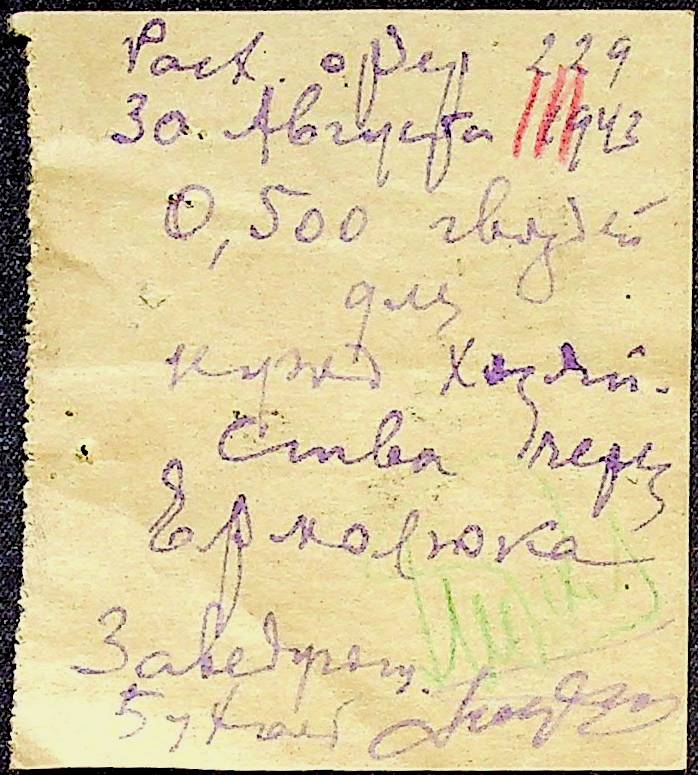 Расх. ордер 229
30. Августа 1943
0,500 гвоздей
для
нужд хозяй-
ства через
Ермолюка
Заведующ.
Бухгалт